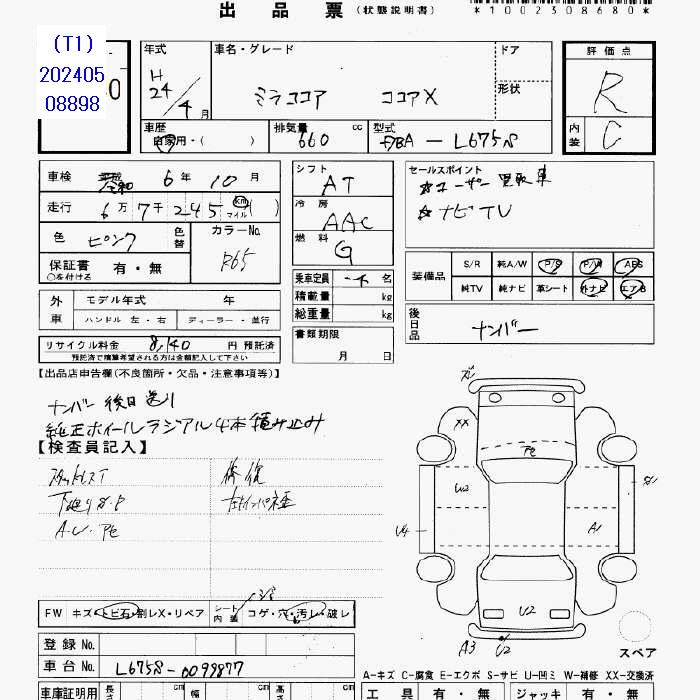 出品票 (状態説明書) *1002308680*
(T1)
202405
08898
年式 H 24/4月
車名・グレード ミラココア ココアX
ドア
形状
評価点 R
内装 C
車歴 自家用・( )
排気量 660 cc
型式 DBA - L675S
車検 平成 令和 6年 10月
走行 6万7千245 km マイル ( )
色 ピンク 色替
カラーNo. R65
保証書 有・無
○を付ける
シフト AT
冷房 AAC
燃料 G
セールスポイント
☆ユーザー買取車
☆ナビTV
乗車定員 名
積載量 kg
総重量 kg
装備品 S/R 純A/W P/S P/W ABS
純TV 純ナビ 革シート 外ナビ エアB
外車 モデル年式 年
ハンドル 左・右 ディーラー・並行
書類期限 月 日
後日品 ナンバー
リサイクル料金 8,140 円 預託済
預託済で精算希望される方は金額記入して下さい
【出品店申告欄(不良箇所・欠品・注意事項等)】
ナンバー後日送り
純正ホイールラジアル4本積み込み
【検査員記入】
スタッドレスT 修復
下廻りS・P 左Fインパネ歪
A・U・Pe
XX Pe U2 U4 A1 U2 A3 U2
スペア
FW キズ・トビ石・割レX・リペア シート内装 コゲ・穴・汚レ・破レ
登録No.
車台No. L675S-0099877
A-キズ C-腐食 E-エクボ S-サビ U-凹ミ W-補修 XX-交換済
車庫証明用 長さ cm 幅 cm 高さ cm
工具 有・無 ジャッキ 有・無